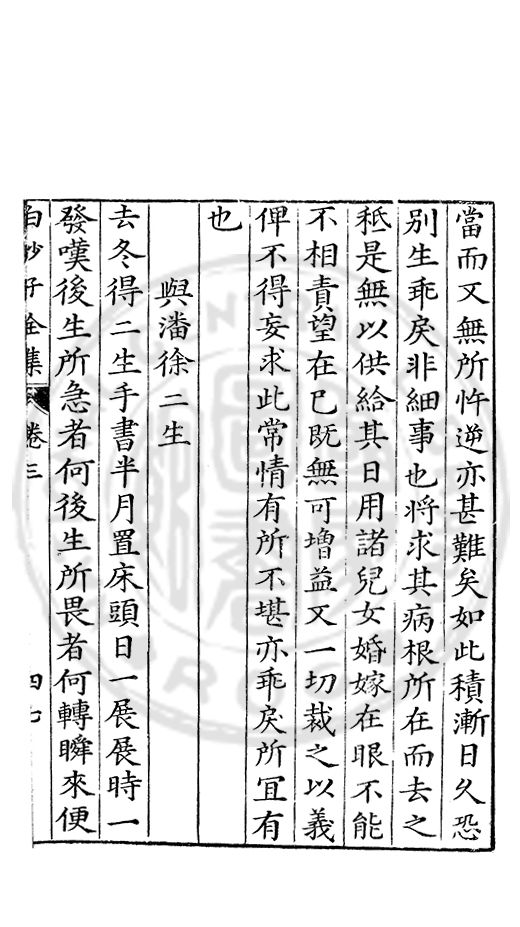 當而又無所忤逆亦甚難矣如此積漸日久恐
別生乖戾非細事也將求其病根所在而去之
秪是無以供給其日用諸兒女婚嫁在眼不能
不相責望在已既無可增益又一切裁之以義
俾不得妄求此常情有所不堪亦乖戾所宜有
也
與潘徐二生
去冬得二生手書半月置床頭日一展展時一
發嘆後生所急者何後生所畏者何轉瞬來便
白沙子全集 卷三 四七